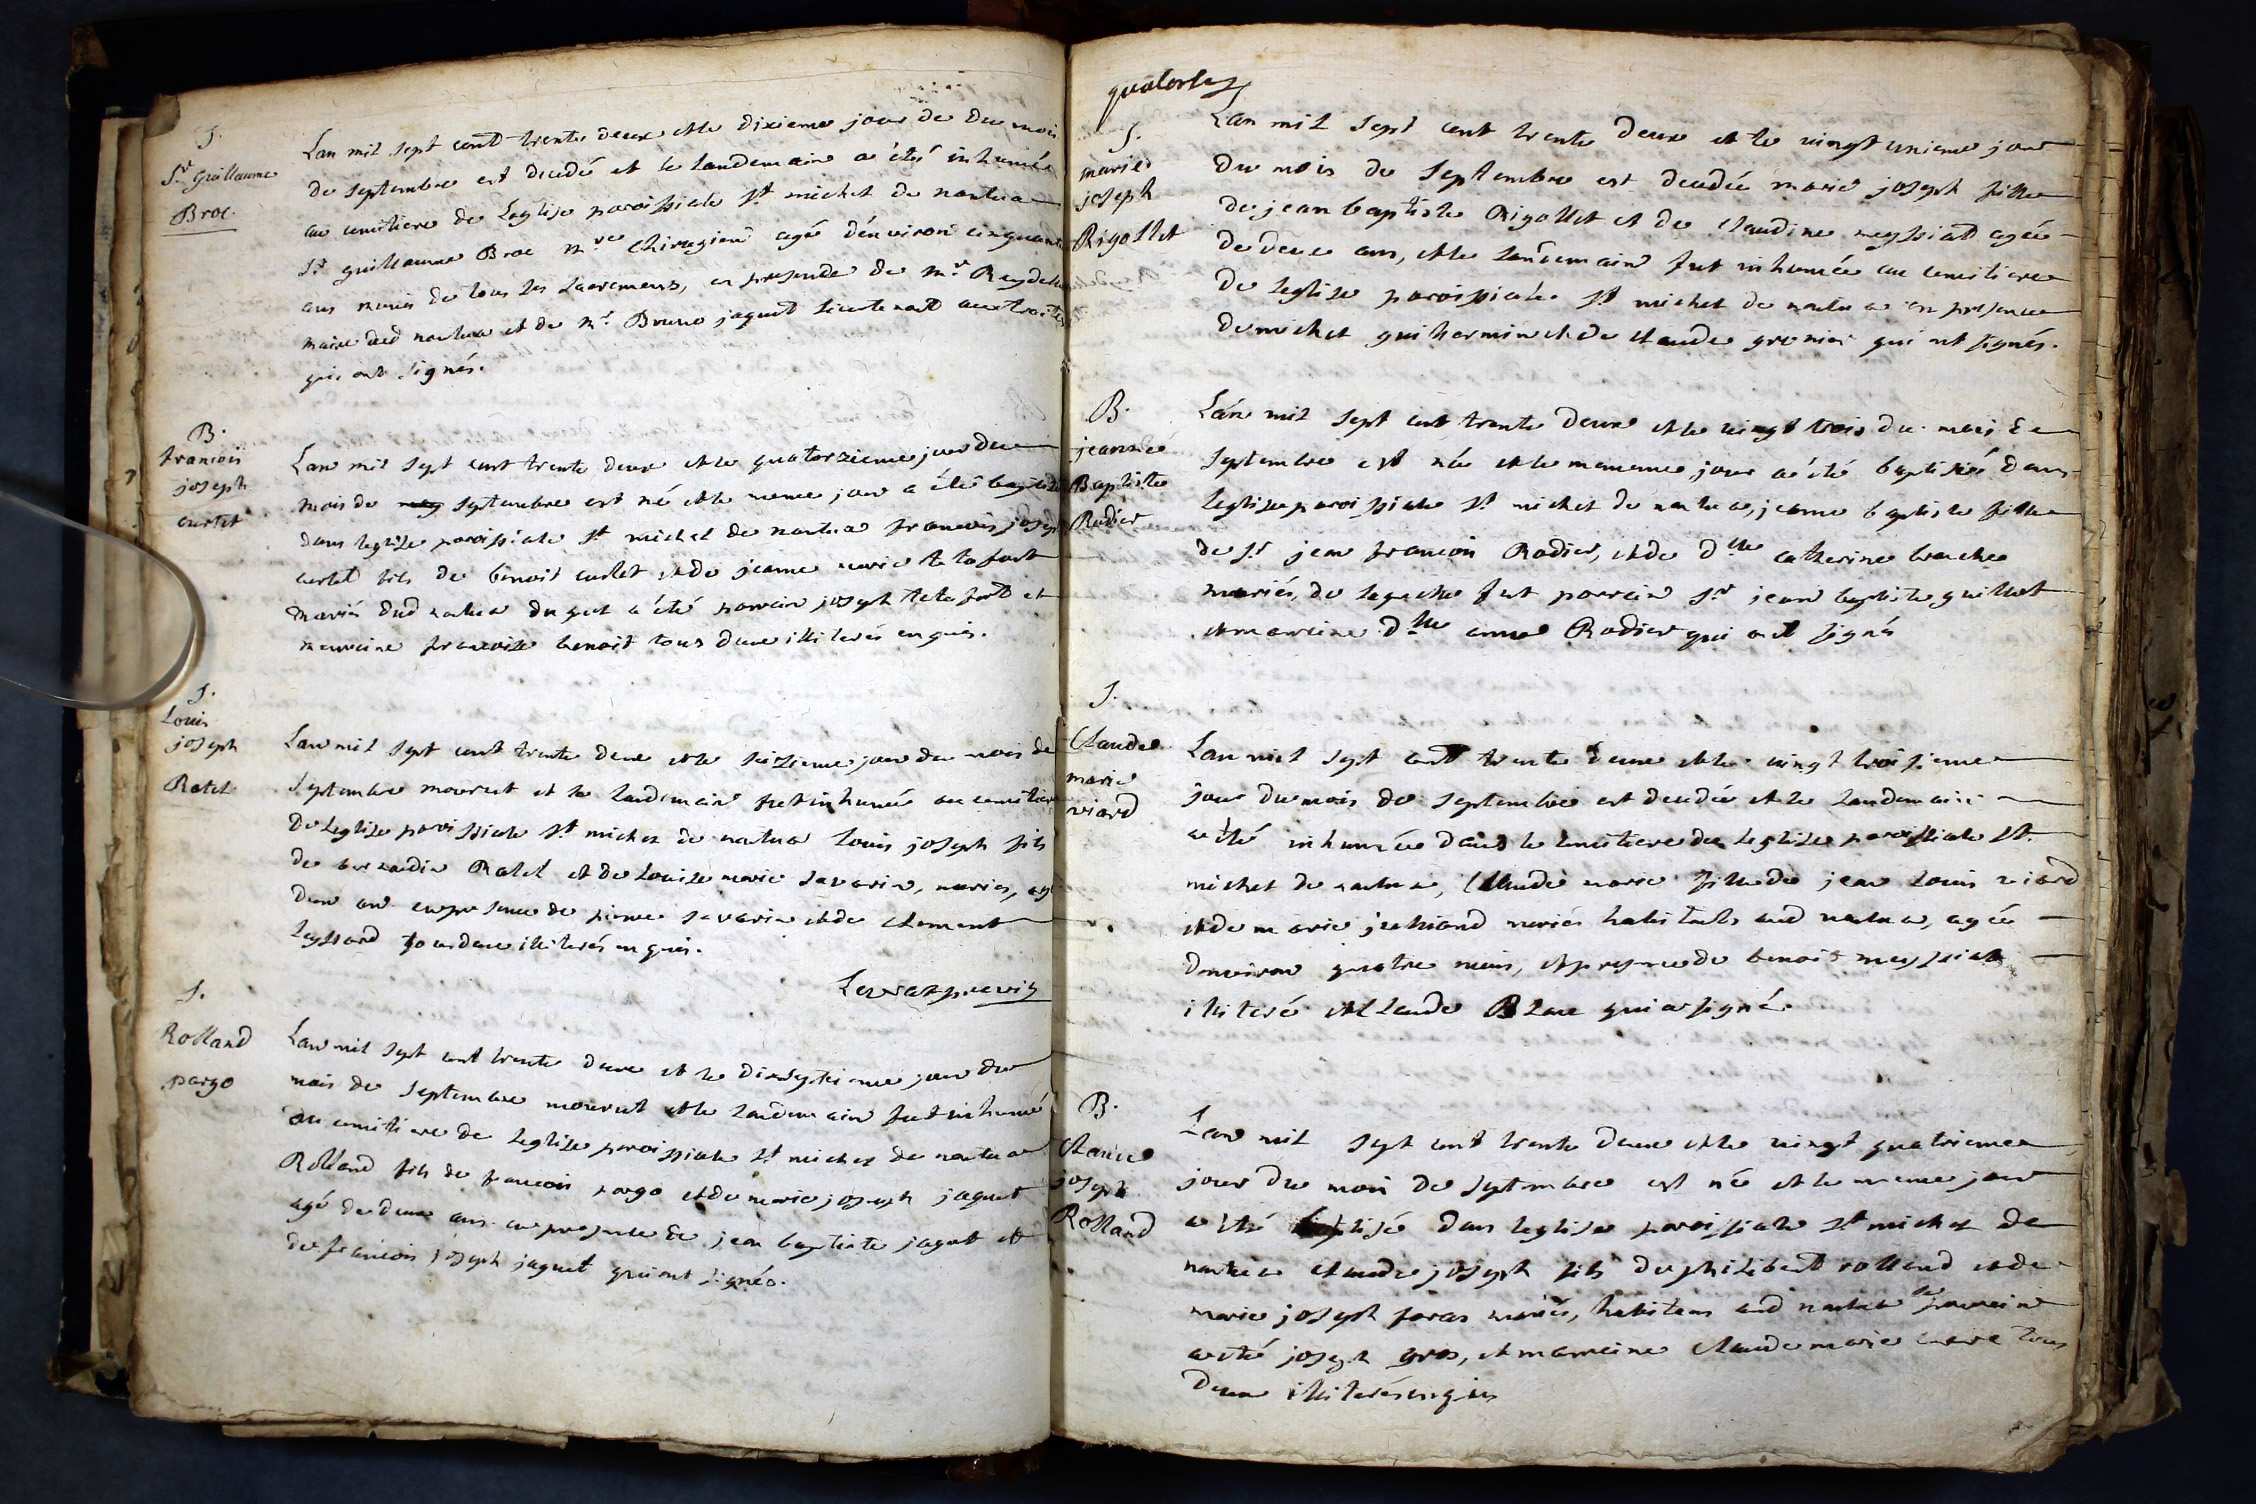 S.
Sr Guillaume
Broc.
Lan mil sept cent trente deux et le dixieme jour de du mois
de septembre est decedé et le landemain a été inhumé
au cemitiere de Leglise paroissiale St michel de nantua
Sr guillaume Broc mre Chirugien agé d'environ cinquante
ans munis de tous les sacremens, en presence de mr Reydellet
maire dud nantua et de mr Bruno jaquet
qui ont signés.
B.
francois
joseph
curtet
Lan mil sept cent trente deux et le quatorzieme jour du
mois de septembre est né et le meme jour a été baptisé
dans leglise paroissiale St michel de nantua francois joseph
curtet fils de benoit curtet et de jeanne marie tetafort
mariés dud nantua du quel a été parrain joseph tetafort et
marraine francoise benoit tous deux illiterés enquis.
S.
Louis
joseph
Ratel
Lan mil sept cent trente deux et le seizieme jour du mois de
septembre mourut et le landemain fut inhumé au cemitiere
de leglise paroissiale St michel de nantua Louis joseph fils
de bernardin Ratel et de Louise marie savarin, mariés, agé
d'un an en presence de pierre savarin et de clement
tous deux illiterés enquis.
S.
Rolland
pargo
Lan mil sept cent trente deux et le dixseptieme jour du
mois de septembre mourut et le landemain fut inhumé
au cemitiere de leglise paroissiale St michel de nantua
Rolland fils de francois pargo et de marie joseph jaquet
agé de deux ans en presence de jean baptiste jaquet et
de francois joseph jaquet qui ont signés.
quatorze
S.
marie
joseph
Rigollet
Lan mil sept cent trente deux et le vingt unieme jour
du mois de septembre est decedée marie joseph fille
de jean baptiste Rigollet et de claudine meyssiat agée
de deux ans, et le landemain fut inhumée au cemitiere
de leglise paroissiale St michel de nantua en presence
de michel guilhermin et de claude grenier qui ont signés.
B.
jeanne
Baptiste
Rodier
Lan mil sept cent trente deux et le vingt trois du mois de
septembre est née et le mememe jour a été baptisée dans
leglise paroissiale St michel de nantua, jeanne baptiste fille
de Sr jean francois Rodier, et de Dlle catherine
mariés, de laquelle fut parrein Sr jean baptiste guillot
et marreine Dlle anne Rodier qui ont signés
S.
Claude
marie
viard
Lan mil sept cent trente deux et le vingt troisieme
jour du mois de septembre est decedée et le landemain
a été inhumée dans le cemitiere de leglise paroissiale St
michel de nantua, Claude marie fille de jean Louis viard
et de marie mariés habitants aud nantua, agée
denviron quatre mois, et presence de benoit meyssiat
illiteré et Claude Blanc qui a signé.
B.
Claude
joseph
Rolland
Lan mil sept cent trente deux et le vingt quatrieme
jour du mois de septembre est né et le meme jour
a été baptisé dans leglise paroissiale St michel de
nantua claude joseph fils de philibert rolland et de
marie joseph foras mariés, habitans aud nantua le parrein
a été joseph gros, et marreine claude marie tous
deux illiterés enquis